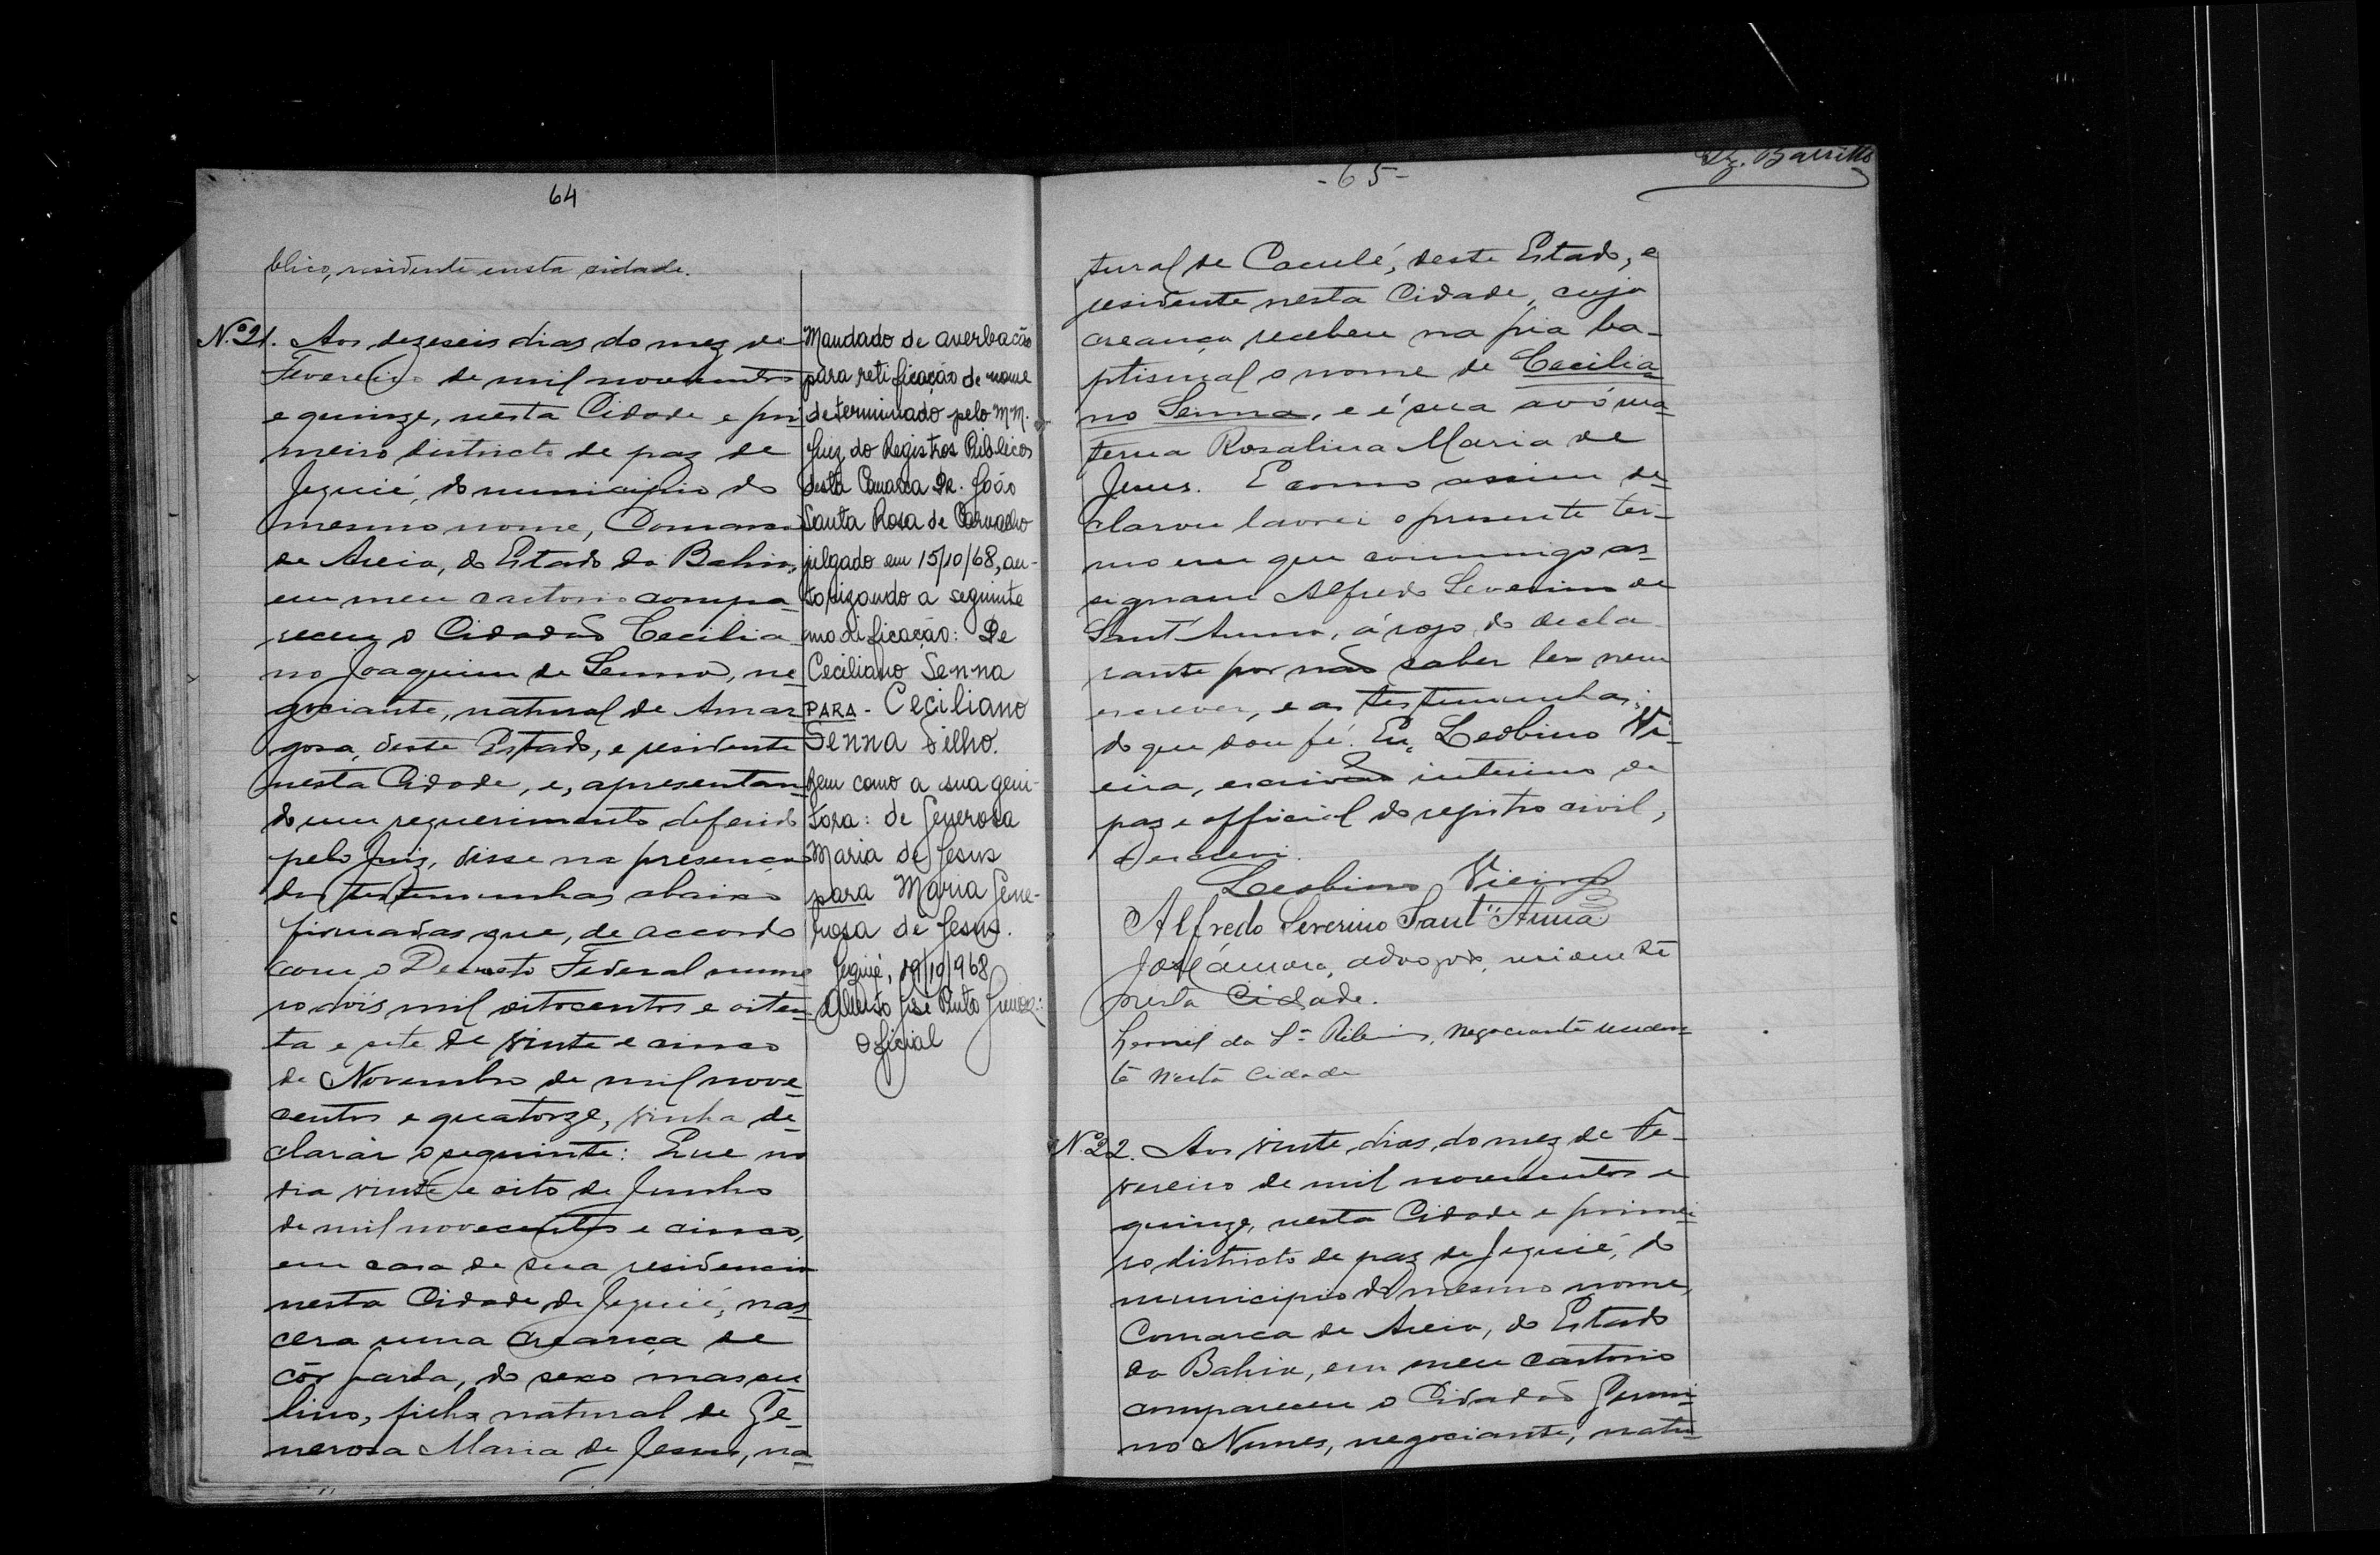 64
blico, residente nesta cidade.
Nº 21. Aos dezeseis dias do mez de
Fevereiro de mil novecentos
e quinze, nesta Cidade e pri-
meiro districto de paz de
Jequié, do municipio do
mesmo nome, Comarca
de Areia, do Estado da Bahia,
em meu cartorio compa-
receu o Cidadão Cecilia-
no Joaquim de Senna, ne-
gociante, natural de Amar-
gosa, deste Estado, e residente
nesta Cidade, e, apresentan-
do um requerimento deferido
pelo Juiz, disse na presença
das testemunhas abaixo
firmadas que, de accordo
com o Decreto Federal nume-
ro dois mil oitocentos e oiten-
ta e sete de vinte e cinco
de Novembro de mil nove-
centos e quatorze, vinha de-
clarar o seguinte: Que no
dia vinte e oito de Junho
de mil novecentos e cinco,
em casa de sua residencia
nesta Cidade de Jequié, nas-
cera uma creança de
côr parda, do sexo mascu-
lino, filho natural de Ge-
nerosa Maria de Jesus, na-
Mandado de averbação
para retificação de nome
determinado pelo M.M.
Juiz do Registros Públicos
desta Comarca Dr. João
Santa Rosa de Carvalho
julgado em 15/10/68, au-
torizando a seguinte
modificação: De
Ceciliano Senna
PARA - Ceciliano
Senna Filho.
Bem como a sua geni-
tora: de Generosa
Maria de Jesus
para Maria Gene-
rosa de Jesus.
Jequié, 19/10/968
Alberto José Pinto Junior:
Oficial
- 65 -
Barretto
tural de Caculé, deste Estado, e
residente nesta Cidade, cuja
creança recebeu na pia ba-
ptismal o nome de Cecilia-
no Senna, e é sua avó ma-
terna Rosalina Maria de
Jesus. E como assim de-
clarou lavrei o presente ter-
mo em que commigo as-
signam Alfredo Severino de
Sant'Anna, á rogo do decla-
rante por não saber ler nem
escrever, e as testemunhas;
do que dou fé. Eu, Leobino Vi-
eira, escrivão interino de
paz e official do registro civil,
o escrevi.
Leobino Vieira
Alfredo Severino Sant'Anna
José, advogado, residente
nesta Cidade.
da Sª Ribeiro, negociante residen-
te nesta cidade
Nº 22. Aos vinte dias do mez de Fe-
vereiro de mil novecentos e
quinze, nesta Cidade e primei-
ro districto de paz de Jequié, do
municipio do mesmo nome,
Comarca de Areia, do Estado
da Bahia, em meu cartorio
compareceu o Cidadão Germi-
no Nunes, negociante, natu-